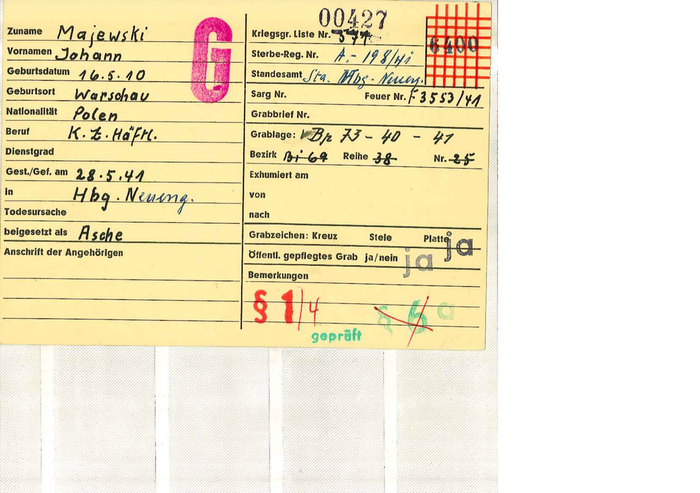 Zuname Majewski
Vornamen Johann
Geburtsdatum 16.5.10
Geburtsort Warschau
Nationalität Polen
Beruf K.Z. Häftl.
Dienstgrad
Gest./Gef. am 28.5.41
in Hbg. Neueng.
Todesursache
beigesetzt als Asche
Anschrift der Angehörigen
G
00427
Kriegsgr. Liste Nr.
6400
Sterbe-Reg. Nr. A.- 198/41
Standesamt Sta. Hbg.-Neueng.
Sarg Nr. Feuer Nr. F 3553/41
Grabbrief Nr.
Grablage: Bp 73 - 40 - 41
Bezirk Bi 69 Reihe 38 Nr. 25
Exhumiert am
von
nach
Grabzeichen: Kreuz Stele Platte ja
Öffentl. gepflegtes Grab ja/nein ja
Bemerkungen
§ 1/4
§ 6 a
geprüft